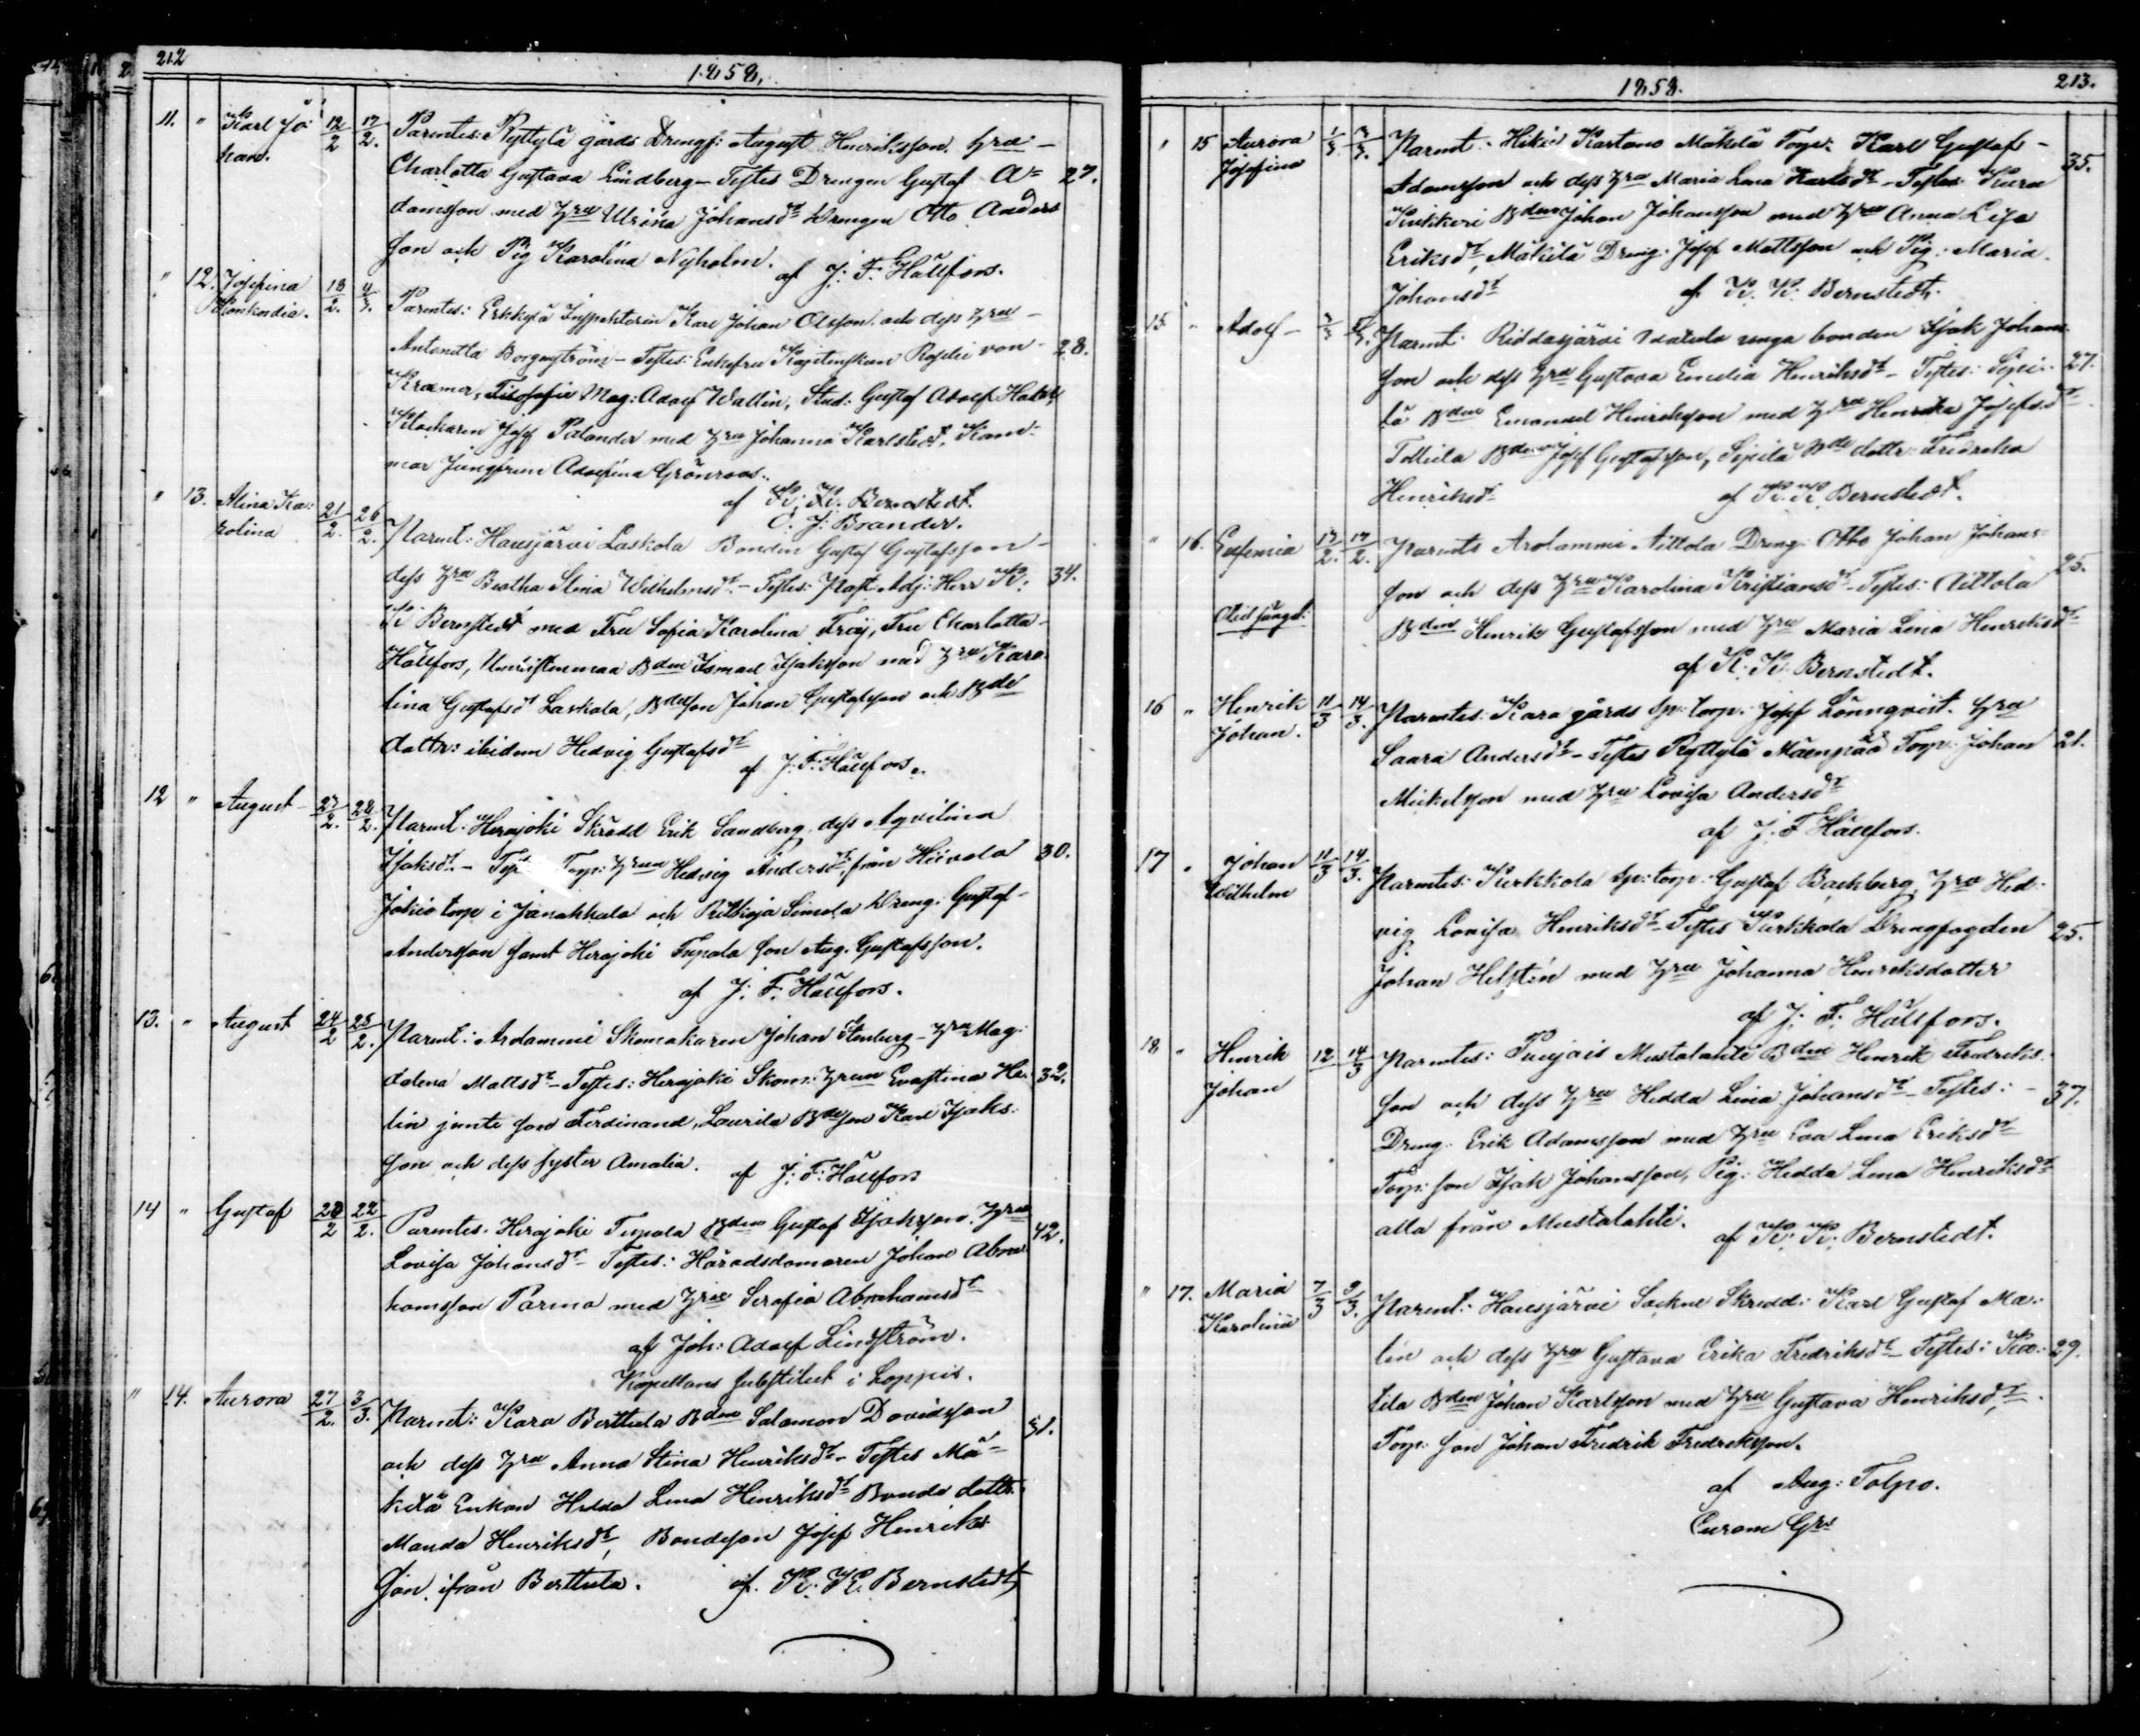 212
1858.
11. " Karl Jo- 12/2 17/2. Parentes: Ryttylä gårds Drengf: August Henriksson, hru –
han. Charlotta Gustava Lindberg – Testes Drengen Gustaf A= 27.
damsson med hru Ulrika Johansdr Drengen Otto Anders
son och Pig Karolina Nyholm. af J. F. Hällfors.
" 12. Josefina 18/2. 4/3. Parentes: Erkkylä Inspektoren Karl Johan Olsson och dess hru –
Konkordia. Antonetta Borgenström – Testes: Enkefru Kapitenskan Rosalie von 28.
Kræmer, Filosofie Mag: Adolf Wallin, Stud: Gustaf Adolf
Klockaren Josef Palander med hru Johanna Karlstedt, Kam-
mar Jungfrun Adolfina Grönroos.
af K. K. Bernstedt.
O. J. Brander.
" 13. Alina Ka- 21/2. 26/2. Parent: Hausjärvi Laskola Bonden Gustaf Gustafsson –
rolina dess hru Beatha Stina Wilhelmsdr. – Testes: Past. Adj: Herr K. 34.
K. Bernstedt med Fru Sofia Karolina Fru Charlotta
Hällfors, Bden Ismael Isaksson med hru Karo-
lina Gustafsdr Laskala, Bdeson Johan Gustafsson och Bde
dottr: ibidem Hedvig Gustafsdr
af J. F. Hällfors.
12 " August 27/2. 28/2. Parent. Herajoki Skrädd Erik Sandberg, dess Aqvilina
Isaksdr. – Torp: hrun Hedvig Andersdr, från Hiivola 30.
torp i Janakkala och Simola Dreng. Gustaf
Andersson samt Herajoki Tupala son Aug. Gustafsson.
af J. F. Hällfors.
13. " August 24/2 25/2. Parent: Arolammi Skomakaren Johan Stenberg – hru Mag-
dalena Mattsdr – Testes: Herajoki Skom: hrun Evastina He- 32.
lin jemte son Ferdinand, Laurila Bdeson Karl Isaks-
son och dess syster Amalia. af J. F. Hällfors
14 " Gustaf 20/2 22/2. Parentes. Herajoki Tupala Bden Gustaf Isaksson. hru 42.
Lovisa Johansdr – Testes: Häradsdomaren Johan Abra-
hamsson Parma med hru Serafia Abrahamsdr
af Joh: Adolf Lindström.
Kapellans substitut i Loppis.
" 14. Aurora 27/2. 3/3. Parent: Kara Berttula Bden Salomon Davidsson
och dess hru Anna Stina Henriksdr – Testes Mä- 31.
kelä Enkan Hedda Lena Henriksdr Bonde dottr:
Manda Henriksdr, Bondeson Josef Henriks
son ifrån Berttula. af. K. K. Bernstedt
1858.
213.
" 15 Aurora 1/3. 7/3. Parent. Hikiä Kartano Mäkelä Torp: Karl Gustaf –
Josefina Adamsson och dess hru Maria Lena Karlsdr – Testes: Kuru 35.
Bden Johan Johansson med hru Anna Lisa
Eriksdr, Mäkilä Dreng: Josef Mattsson och Pig: Maria
Johansdr af K. K. Bernstedt.
15. " Adolf – Parent: Riddasjärvi unga bonden Isak Johans-
son och dess hru Gustava Emilia Henriksdr – Testes: Sipi- 27.
lä Bden Emanuel Henriksson med hru Henrika Josefsdr
Tollila Bden Josef Gustafsson, Sipilä Bde dottr: Fredrika
Henriksdr af K. K. Bernstedt.
" 16. Eufemia 13/2. 17/2. Parents Arolammi Aittola Dreng. Otto Johan Johans-
son och dess hru Karolina Kristiansdr – Testes: Aittola 25.
Bden Henrik Gustafsson med hru Maria Lena Henriksdr
af K. K. Bernstedt.
16 " Henrik 11/3 14/3. Parentes: Kara gårds Sp: torp. Josef Lönnqvist. hru
Johan. Saara Andersdr – Testes Ryttylä Mäenpää Torp: Johan 21.
Mickelsson med hru Lovisa Andersdr
af J. F. Hällfors.
17 " Johan 11/3 14/3. Parentes: Kerkkola Sp: torp: Gustaf Bachberg, hru Hed-
Wilhelm vig Lovisa Henriksdr – Testes Kerkkola Drengfogden 25.
Johan Helstén med hru Johanna Henriksdotter
af J. F. Hällfors.
18 " Henrik 12 14/3 Parentes: Puujais Mustalahti Bden Henrik Fredriks-
Johan son och dess hru Hedda Lena Johansdr – Testes: – 37.
Dreng. Erik Adamsson med hru Eva Lena Eriksdr
Torp: son Isak Johansson, Pig: Hedda Lena Henriksdr
alla från Mustalahti. af K. K. Bernstedt.
" 17. Maria 7/3 9/3. Parent: Hausjärvi Sockne Skrädd: Karl Gustaf Ma-
Karolina lin och dess hru Gustava Erika Fredriksdr – Testes: 29.
Bden Johan Karlsson med hru Gustava Henriksdr,
Torp: son Johan Fredrik Fredriksson.
af Aug: Tolpo.